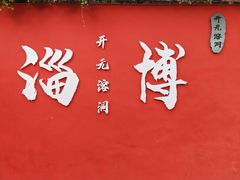 淄博
开元溶洞
开元溶洞